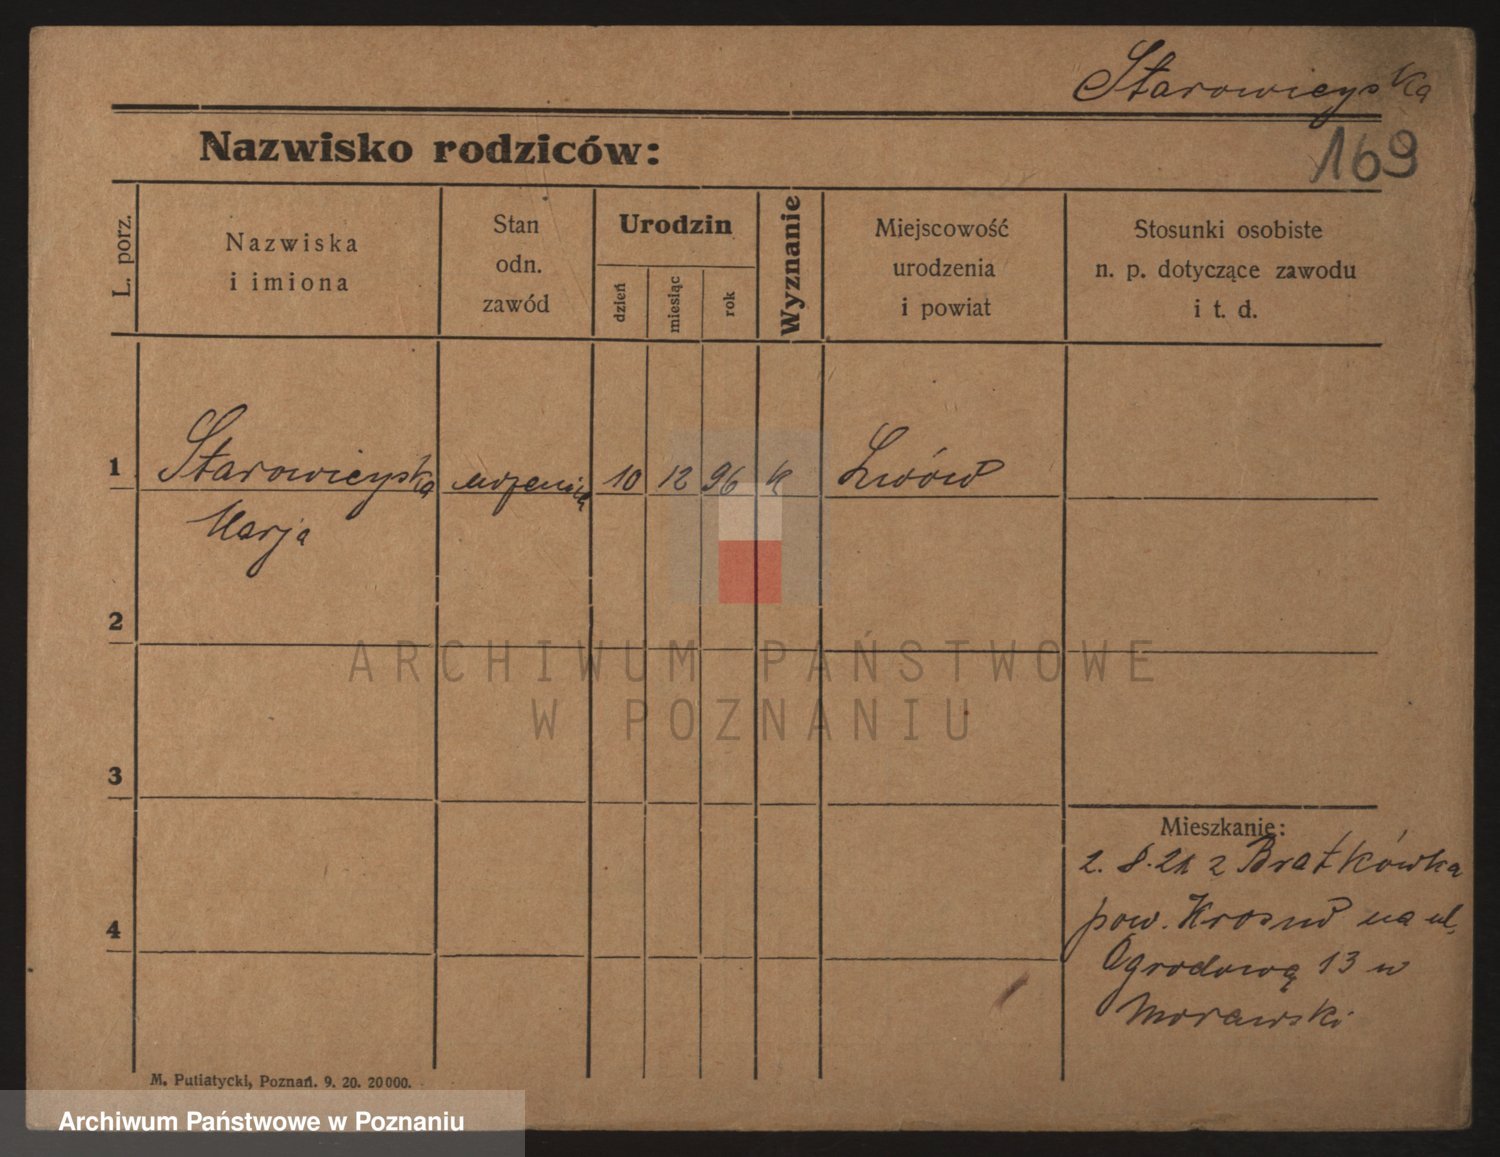 Starowieyska
169
Nazwisko rodziców:
L. porz.
Nazwiska
i imiona
Stan
odn.
zawód
Urodzin
dzień
miesiąc
rok
Wyznanie
Miejscowość
urodzenia
i powiat
Stosunki osobiste
n. p. dotyczące zawodu
i t. d.
1 Starowieyska uczenica 10 12 96 k Lwów
Marja
2
3
4
Mieszkanie:
2. 8. 21 z Bratkówka
pow. Krosno na ul.
Ogrodową 13 u
Morawski
M. Putiatycki, Poznań. 9. 20. 20000.
ARCHIWUM PAŃSTWOWE
W POZNANIU
Archiwum Państwowe w Poznaniu